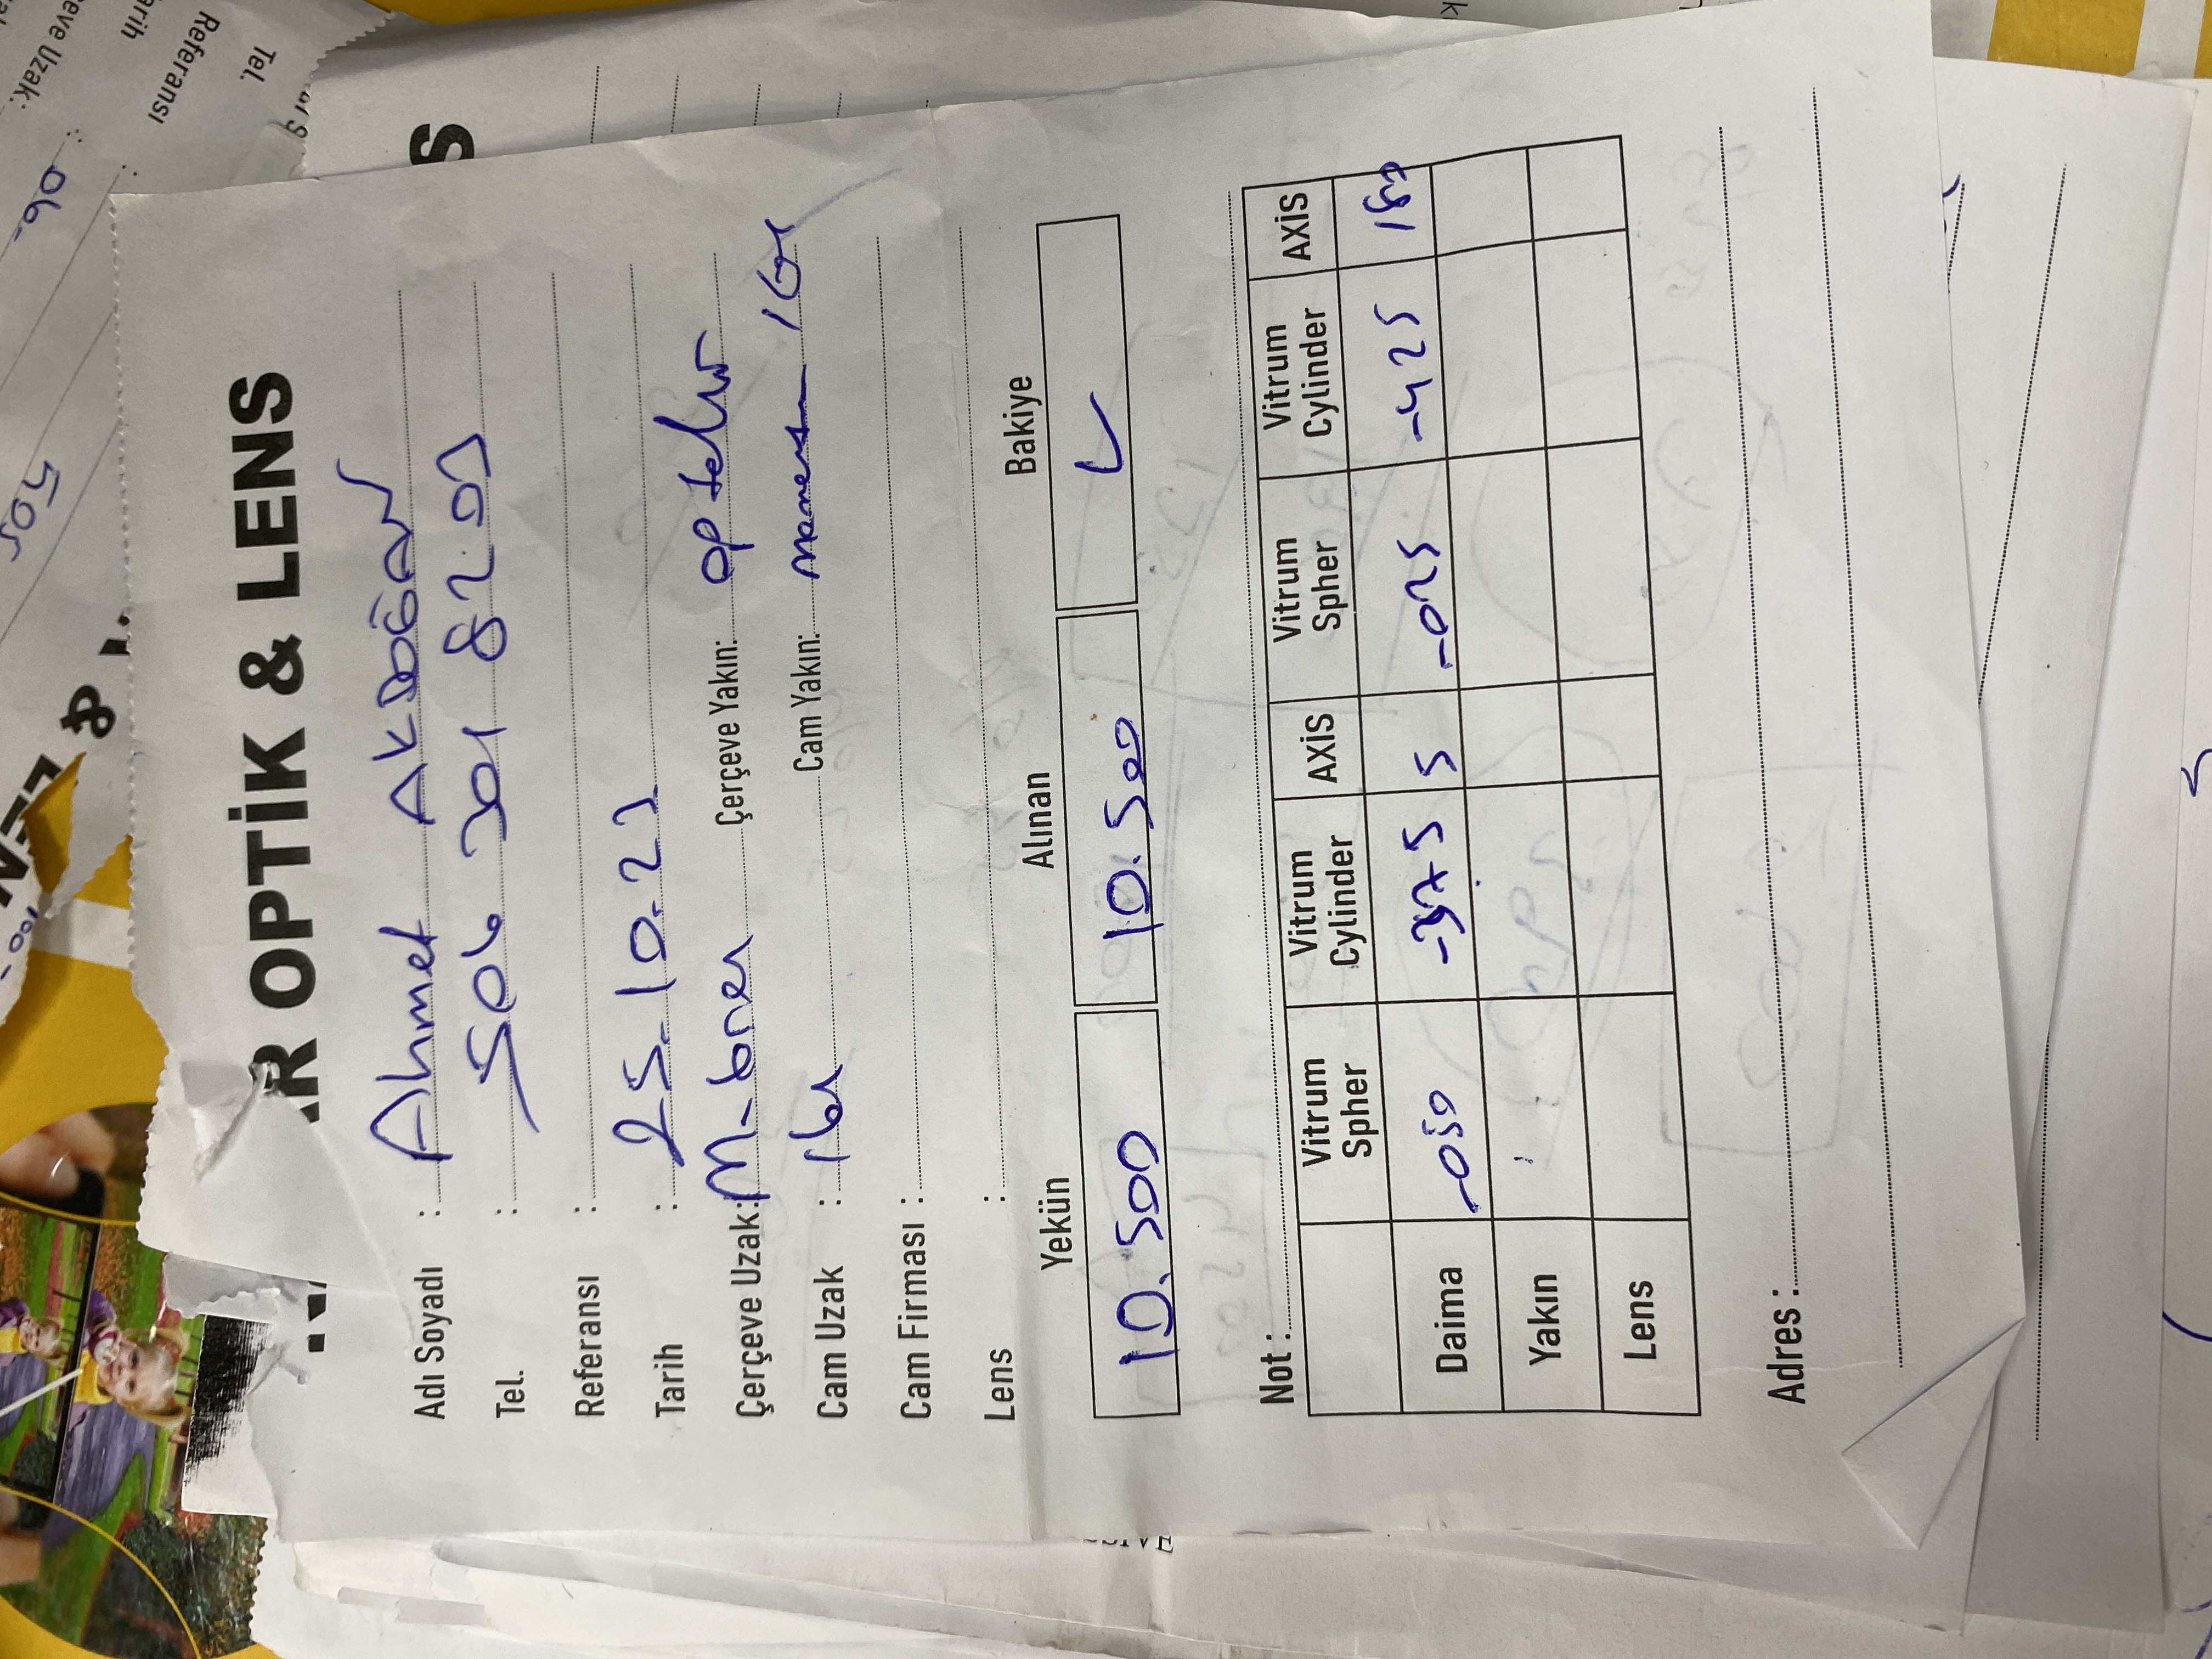 R OPTİK & LENS
Adı Soyadı : Ahmet AKDOĞAN
Tel. : 506 301 82 03
Referansı :
Tarih : 25.10.23
Çerçeve Uzak: Çerçeve Yakın:
Cam Uzak : 161 Cam Yakın: 161
Cam Firması :
Lens :
Yekün Alınan Bakiye
10.500 10.500
Not :
Vitrum Spher Vitrum Cylinder AXİS Vitrum Spher Vitrum Cylinder AXİS
Daima -050 -375 5 -025 -425 180
Yakın
Lens
Adres :